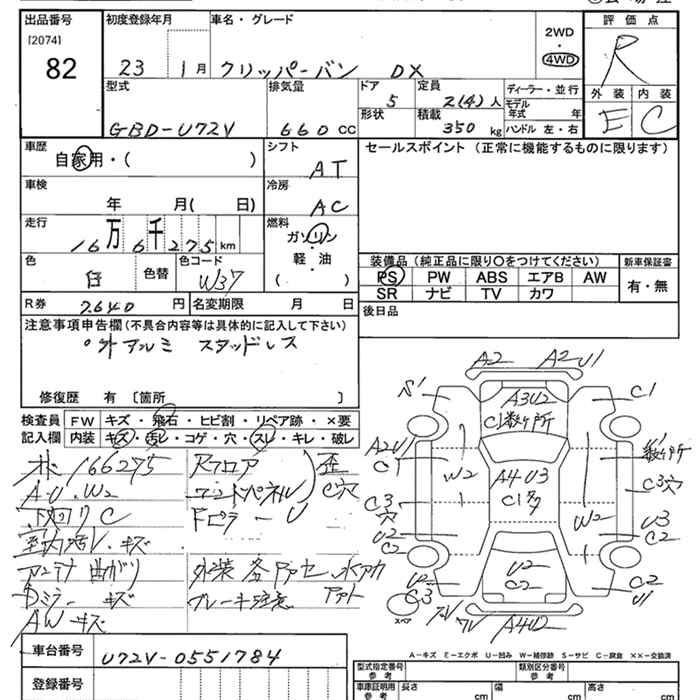 出品番号 初度登録年月 車名・グレード 評価点
[2074]
82
23 1月 クリッパーバン DX
2WD
4WD
R
型式 排気量 ドア 定員 ディーラー・並行
5 2(4)人
モデル年式 年
外装 内装
GBD-U72V 660CC
形状 積載 350kg ハンドル 左・右
E C
車歴 シフト セールスポイント (正常に機能するものに限ります)
自家用・( )
AT
車検 冷房
年 月( 日)
AC
走行 燃料
16万6千275km
ガソリン
・
軽・油
( )
色 色替 色コード
白 W37
装備品(純正品に限り○をつけてください) 新車保証書
PS PW ABS エアB AW
有・無
SR ナビ TV カワ
R券 7640円 名変期限 月 日
後日品
注意事項申告欄(不具合内容等は具体的に記入して下さい)
外アルミ スタッドレス
修復歴 有 〔箇所 〕
検査員 FW キズ・飛石・ヒビ割・リペア跡・×要
記入欄 内装 キズ・汚レ・コゲ・穴・スレ・キレ・破レ
166275 Rフロア 歪
A・U・W2 C穴
下回りC
室内汚レ・キズ
アンテナ曲がり
ブレーキ注意
Dミラーキズ
AWキズ
A2 A2U1
S1 A3U2 C1
C1数ヶ所
A2U1
C1
W2 A4U3
C1
C3穴 W2 C3穴
U2 U3
C2 C2
U2
C2
C3 C2
U1
スペア
A4U2
A-キズ E-エクボ U-凹み W-補修跡 S-サビ C-腐食 ××-交換済
車台番号 U72V-0551784
型式指定番号 参考 類別区分番号 参考
登録番号
車庫証明用 参考 長さ cm 幅 cm 高さ cm